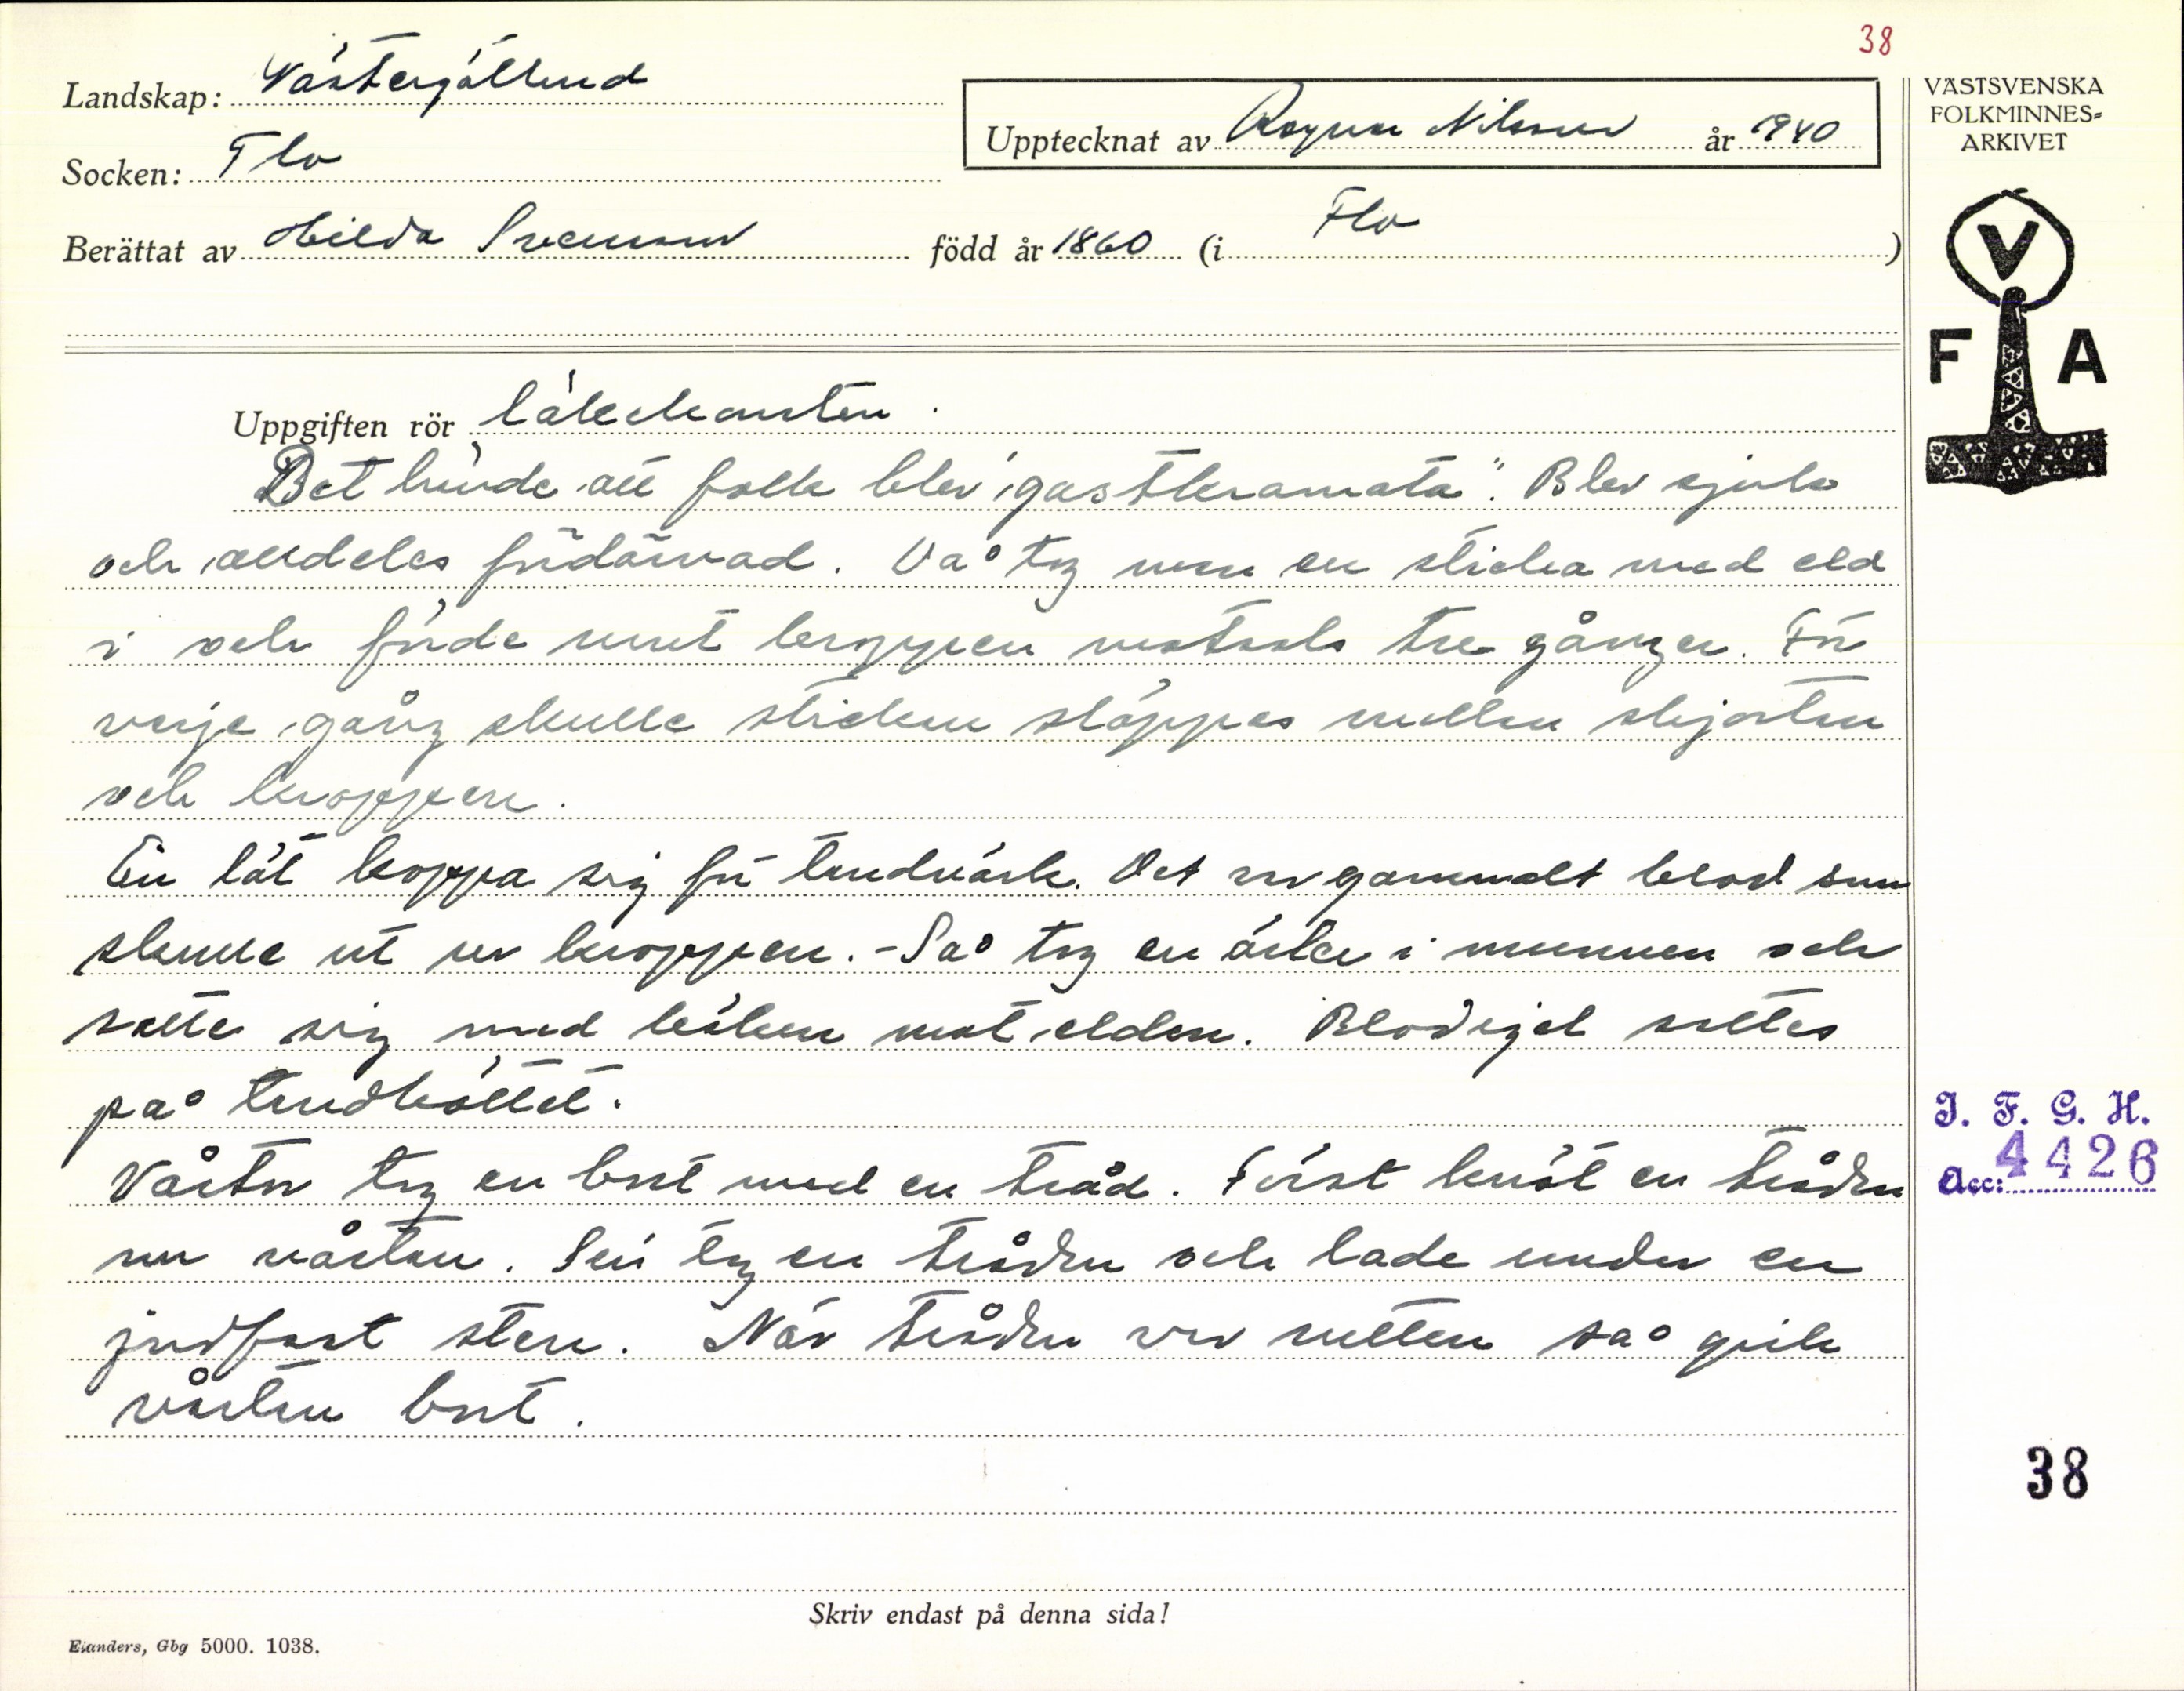 38
Landskap: Västergötland
Upptecknat av Ragnar Nilsson år 1940
VÄSTSVENSKA
FOLKMINNES-
ARKIVET
Socken: Flo
Berättat av Hilda Svensson född år 1860 (i Flo)
V
F A
Uppgiften rör läkekonsten.
Det hände att folk blev "gastkramata". Blev sjuk
och alldeles fördärvad. Då tog man en sticka med eld
i och förde runt kroppen motsols tre gånger. För
varje gång skulle stickan släppas mellan skjortan
och kroppen.
En lät koppa sig för tandvärk. Det var gammalt blod som
skulle ut ur kroppen. - Så tog en ärter i munnen och
satte sig med käken mot elden. Blodigel sattes
på tandköttet.
Vårtor tog en bort med en tråd. Först knöt en tråden
om vårtan. Sen tog en tråden och lade under en
jordfast sten. När tråden var rutten så gick
vårtan bort.
I. F. G. H.
Acc: 4426
38
Skriv endast på denna sida!
Elanders, Gbg 5000. 1038.